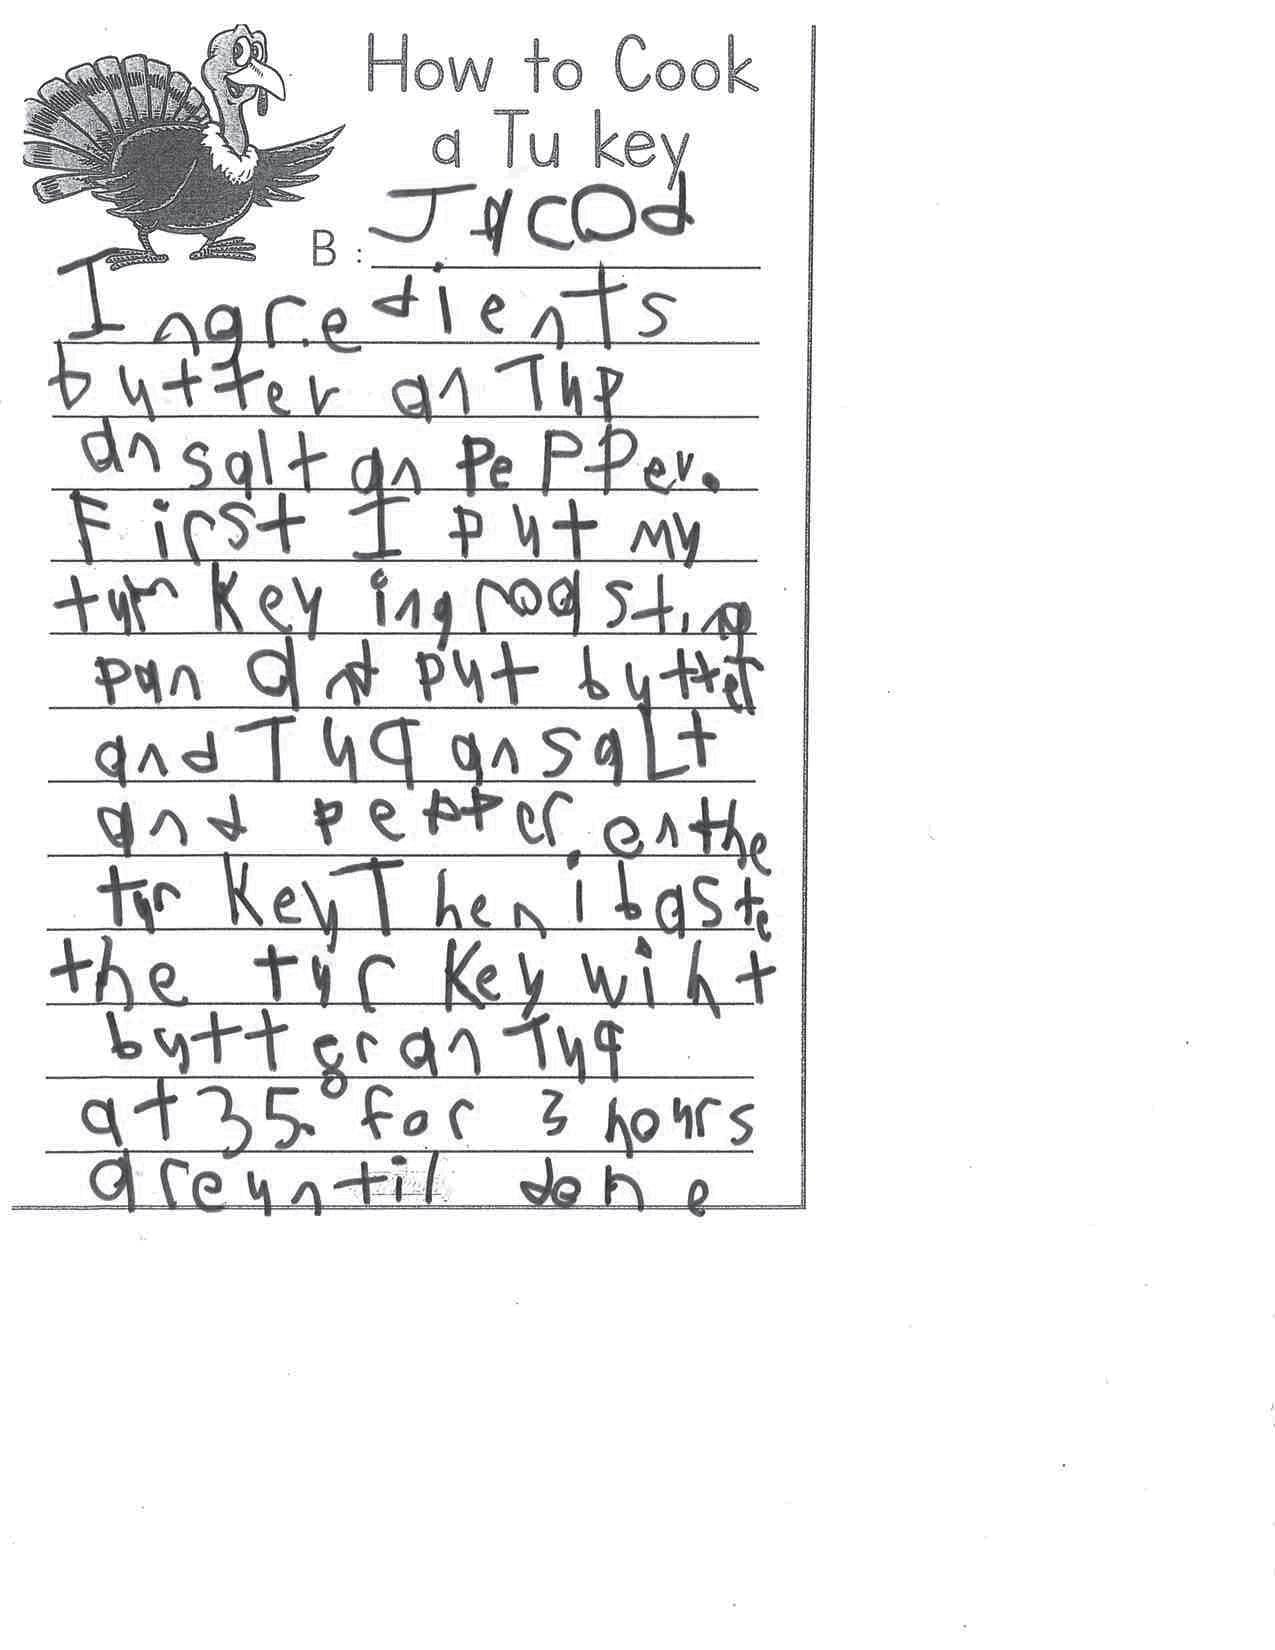 How to Cook
a Tu key
B : JACOd
Ingredients
butter an Tup
an salt an PePPer.
First I put my
turkey ing roasting
pan and put butter
and Tuq an saLt
and pepper enthe
turkey Then i baste
the turkey wiht
butter an Tuq
at 35° for 3 hours
areuntil done